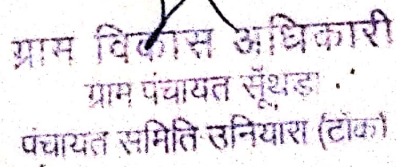 ग्राम विकास अधिकारी
ग्राम पंचायत सूँथड़ा
पंचायत समिति उनियारा (टोंक)